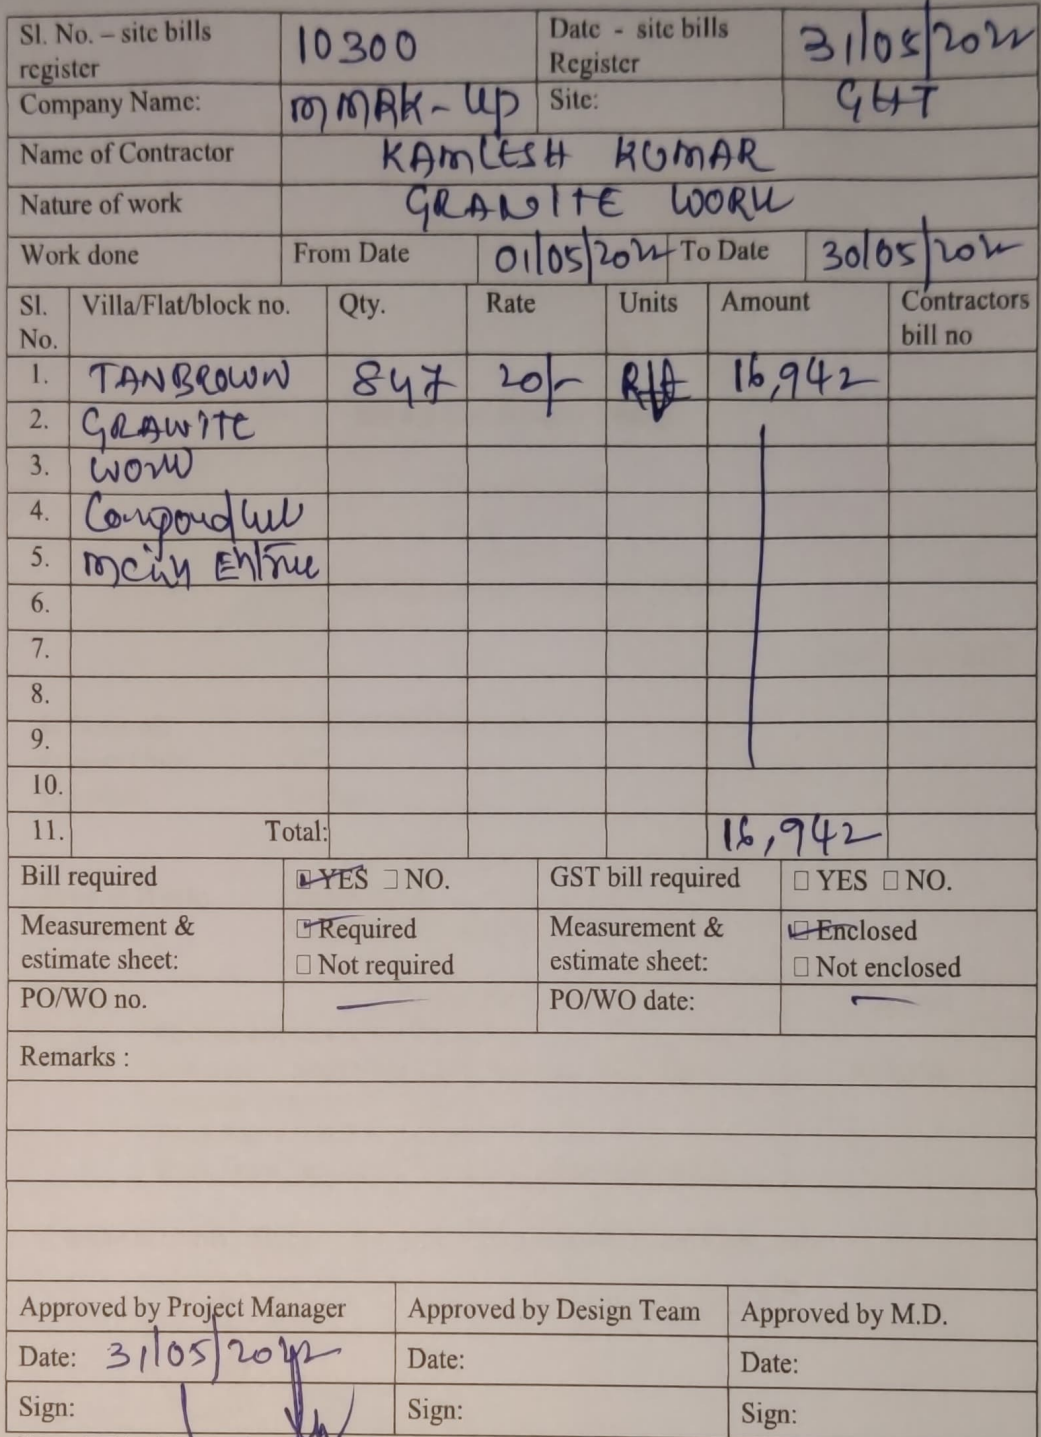 Sl. No. – site bills register 10300 Date - site bills Register 31/05/2022
Company Name: MMRK-UP Site: GHT
Name of Contractor KAMLESH KUMAR
Nature of work GRANITE WORK
Work done From Date 01/05/2022 To Date 30/05/2022
Sl. No. Villa/Flat/block no. Qty. Rate Units Amount Contractors bill no
1. TANBROWN 847 20/- Rft 16,942
2. GRANITE
3. WORK
4. Compound
5. Main
6.
7.
8.
9.
10.
11. Total: 16,942
Bill required YES NO. GST bill required YES NO.
Measurement & estimate sheet: Required Not required Measurement & estimate sheet: Enclosed Not enclosed
PO/WO no. — PO/WO date: —
Remarks :
Approved by Project Manager Approved by Design Team Approved by M.D.
Date: 31/05/2022 Date: Date:
Sign: Sign: Sign: